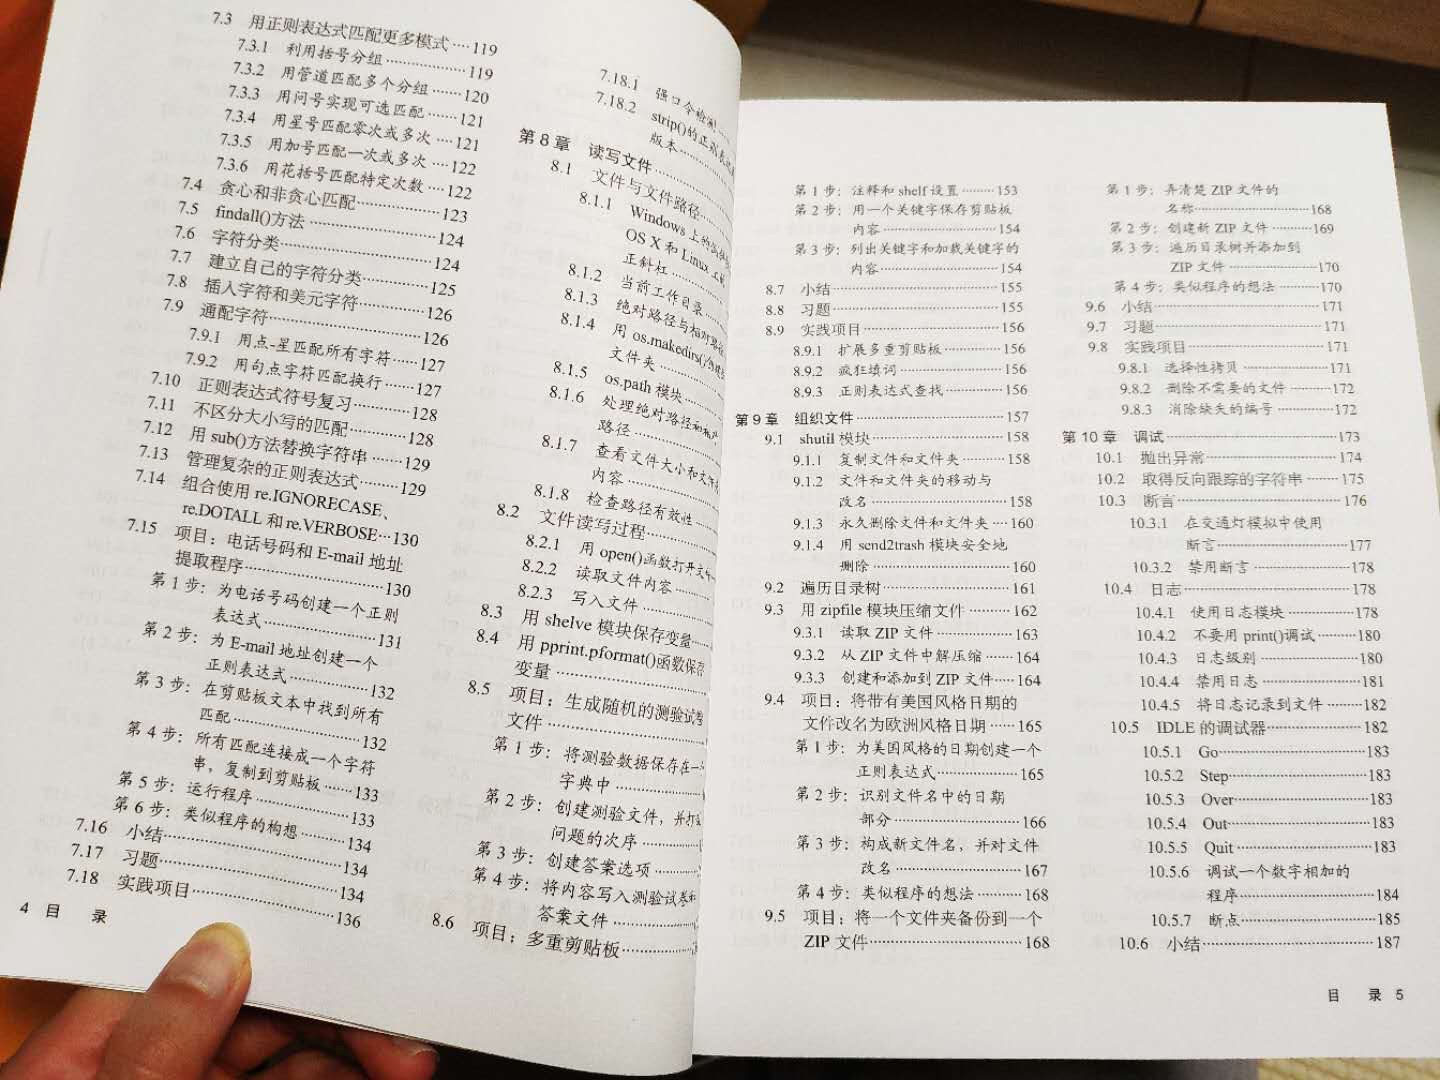 7.3 用正则表达式匹配更多模式····119
7.3.1 利用括号分组····················119
7.3.2 用管道匹配多个分组·······120
7.3.3 用问号实现可选匹配·······121
7.3.4 用星号匹配零次或多次····121
7.3.5 用加号匹配一次或多次····122
7.3.6 用花括号匹配特定次数····122
7.4 贪心和非贪心匹配····················123
7.5 findall()方法····························124
7.6 字符分类·································124
7.7 建立自己的字符分类················125
7.8 插入字符和美元字符················126
7.9 通配字符·································126
7.9.1 用点-星匹配所有字符······127
7.9.2 用句点字符匹配换行·······127
7.10 正则表达式符号复习·············128
7.11 不区分大小写的匹配·············128
7.12 用 sub()方法替换字符串·······129
7.13 管理复杂的正则表达式·········129
7.14 组合使用 re.IGNORECASE、
re.DOTALL 和 re.VERBOSE···130
7.15 项目：电话号码和 E-mail 地址
提取程序·································130
第 1 步：为电话号码创建一个正则
表达式·····························131
第 2 步：为 E-mail 地址创建一个
正则表达式····················132
第 3 步：在剪贴板文本中找到所有
匹配·································132
第 4 步：所有匹配连接成一个字符
串，复制到剪贴板·······133
第 5 步：运行程序······················133
第 6 步：类似程序的构想···········134
7.16 小结·······································134
7.17 习题·······································134
7.18 实践项目·································136
4 目 录
7.18.1 强口令检测
7.18.2 strip()的正则表达
版本
第 8 章 读写文件
8.1 文件与文件路径
8.1.1 Windows 上的
OS X 和 Linux 上的
正斜杠
8.1.2 当前工作目录
8.1.3 绝对路径与相对路径
8.1.4 用 os.makedirs()创建新
文件夹
8.1.5 os.path 模块
8.1.6 处理绝对路径和相对
路径
8.1.7 查看文件大小和文件夹
内容
8.1.8 检查路径有效性
8.2 文件读写过程
8.2.1 用 open()函数打开文件
8.2.2 读取文件内容
8.2.3 写入文件
8.3 用 shelve 模块保存变量
8.4 用 pprint.pformat()函数保存
变量
8.5 项目：生成随机的测验试卷
文件
第 1 步：将测验数据保存在一个
字典中
第 2 步：创建测验文件，并打乱
问题的次序
第 3 步：创建答案选项
第 4 步：将内容写入测验试卷和
答案文件
8.6 项目：多重剪贴板
第 1 步：注释和 shelf 设置·········153
第 2 步：用一个关键字保存剪贴板
内容·································154
第 3 步：列出关键字和加载关键字的
内容·································154
8.7 小结·······································155
8.8 习题·······································155
8.9 实践项目·································156
8.9.1 扩展多重剪贴板·············156
8.9.2 疯狂填词·······················156
8.9.3 正则表达式查找·············156
第 9 章 组织文件·····························157
9.1 shutil 模块·······························158
9.1.1 复制文件和文件夹··········158
9.1.2 文件和文件夹的移动与
改名·····························158
9.1.3 永久删除文件和文件夹···160
9.1.4 用 send2trash 模块安全地
删除·····························160
9.2 遍历目录树·····························161
9.3 用 zipfile 模块压缩文件··········162
9.3.1 读取 ZIP 文件·················163
9.3.2 从 ZIP 文件中解压缩······164
9.3.3 创建和添加到 ZIP 文件····164
9.4 项目：将带有美国风格日期的
文件改名为欧洲风格日期······165
第 1 步：为美国风格的日期创建一个
正则表达式····················165
第 2 步：识别文件名中的日期
部分·································166
第 3 步：构成新文件名，并对文件
改名·································167
第 4 步：类似程序的想法···········168
9.5 项目：将一个文件夹备份到一个
ZIP 文件·································168
第 1 步：弄清楚 ZIP 文件的
名称·································168
第 2 步：创建新 ZIP 文件··········169
第 3 步：遍历目录树并添加到
ZIP 文件·························170
第 4 步：类似程序的想法··········170
9.6 小结·······································171
9.7 习题·······································171
9.8 实践项目·································171
9.8.1 选择性拷贝····················171
9.8.2 删除不需要的文件··········172
9.8.3 消除缺失的编号·············172
第 10 章 调试···································173
10.1 抛出异常·······························174
10.2 取得反向跟踪的字符串·······175
10.3 断言·······································176
10.3.1 在交通灯模拟中使用
断言·····························177
10.3.2 禁用断言······················178
10.4 日志·······································178
10.4.1 使用日志模块···············178
10.4.2 不要用 print()调试·········180
10.4.3 日志级别······················180
10.4.4 禁用日志······················181
10.4.5 将日志记录到文件·········182
10.5 IDLE 的调试器······················182
10.5.1 Go·································183
10.5.2 Step······························183
10.5.3 Over······························183
10.5.4 Out·······························183
10.5.5 Quit······························183
10.5.6 调试一个数字相加的
程序·····························184
10.5.7 断点·····························185
10.6 小结·······································187
目 录 5